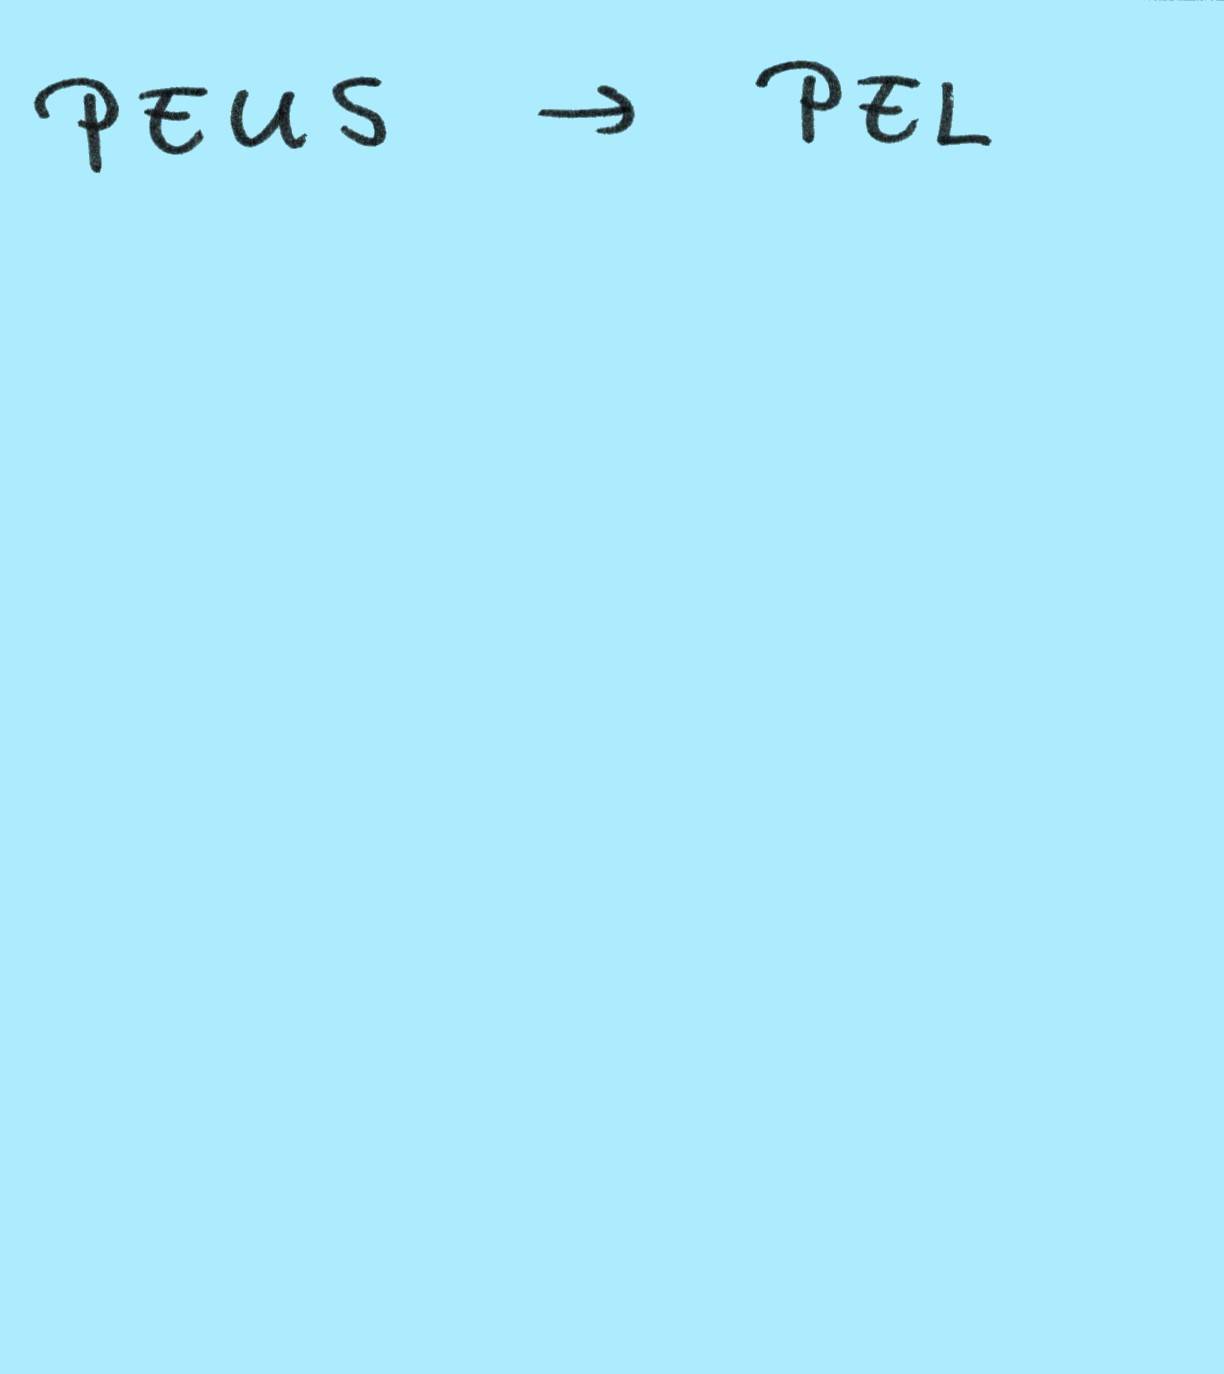 PEUS → PEL